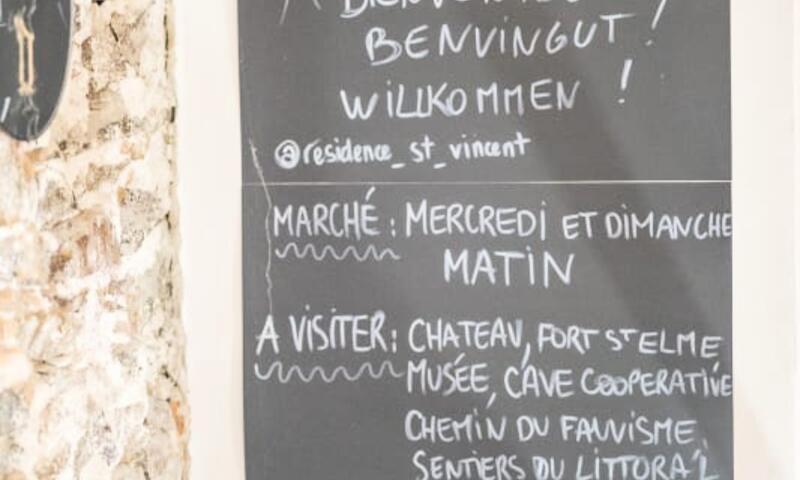 BENVINGUT !
WILLKOMMEN !
@residence_st_vincent
MARCHÉ : MERCREDI ET DIMANCHE
MATIN
A VISITER : CHATEAU, FORT ST ELME
MUSÉE, CAVE COOPERATIVE
CHEMIN DU FAUVISME,
SENTIERS DU LITTORAL